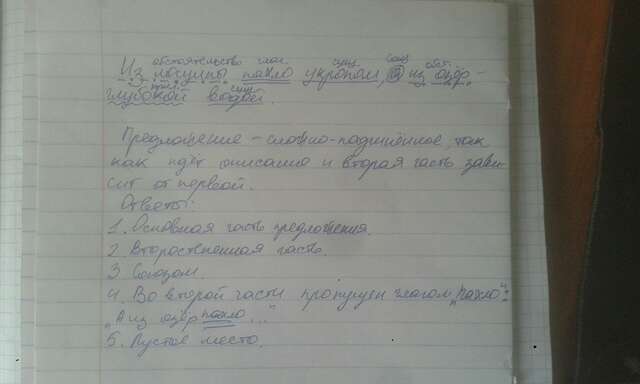 обстоятельство глаг. сущ. союз обст.
Из лощины пахло укропом, а из озёр -
прил. сущ.
глубокой водой.
Предложение - сложно-подчинённое, так
как идёт описание и вторая часть зави-
сит от первой.
Ответы:
1. Основная часть предложения.
2. Второстепенная часть.
3 Союзом.
4. Во второй части пропущен глагол „пахло":
„А из озёр пахло..."
5. Пустое место.